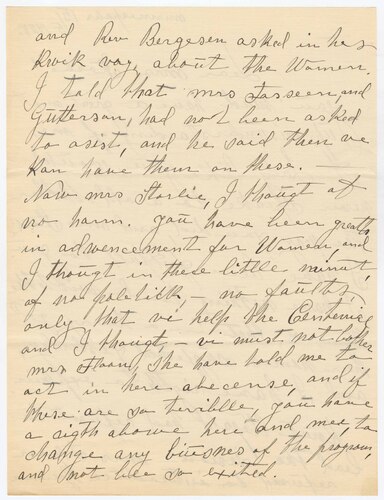 and Rev Bergesen asked in hes
kwik vay, about the Women.
I told that mrs Fosseen and
Gutterson, had not been asked
to asist, and he said then ve
kan have them on these.
Now mrs Storlie, I thougt of
no harm. you have been greath
in advencement for Women, and
I thougt in these little minut,
of no politikk, – no faults,
only that vi help the Centenial
and I thougt, – vi must not bother
mrs Sloan, She have told me to
act in here abecense, and if
there are so terrible, you have
a rigth above here and me, to
change any buisnes of the program,
and not bee so exited.